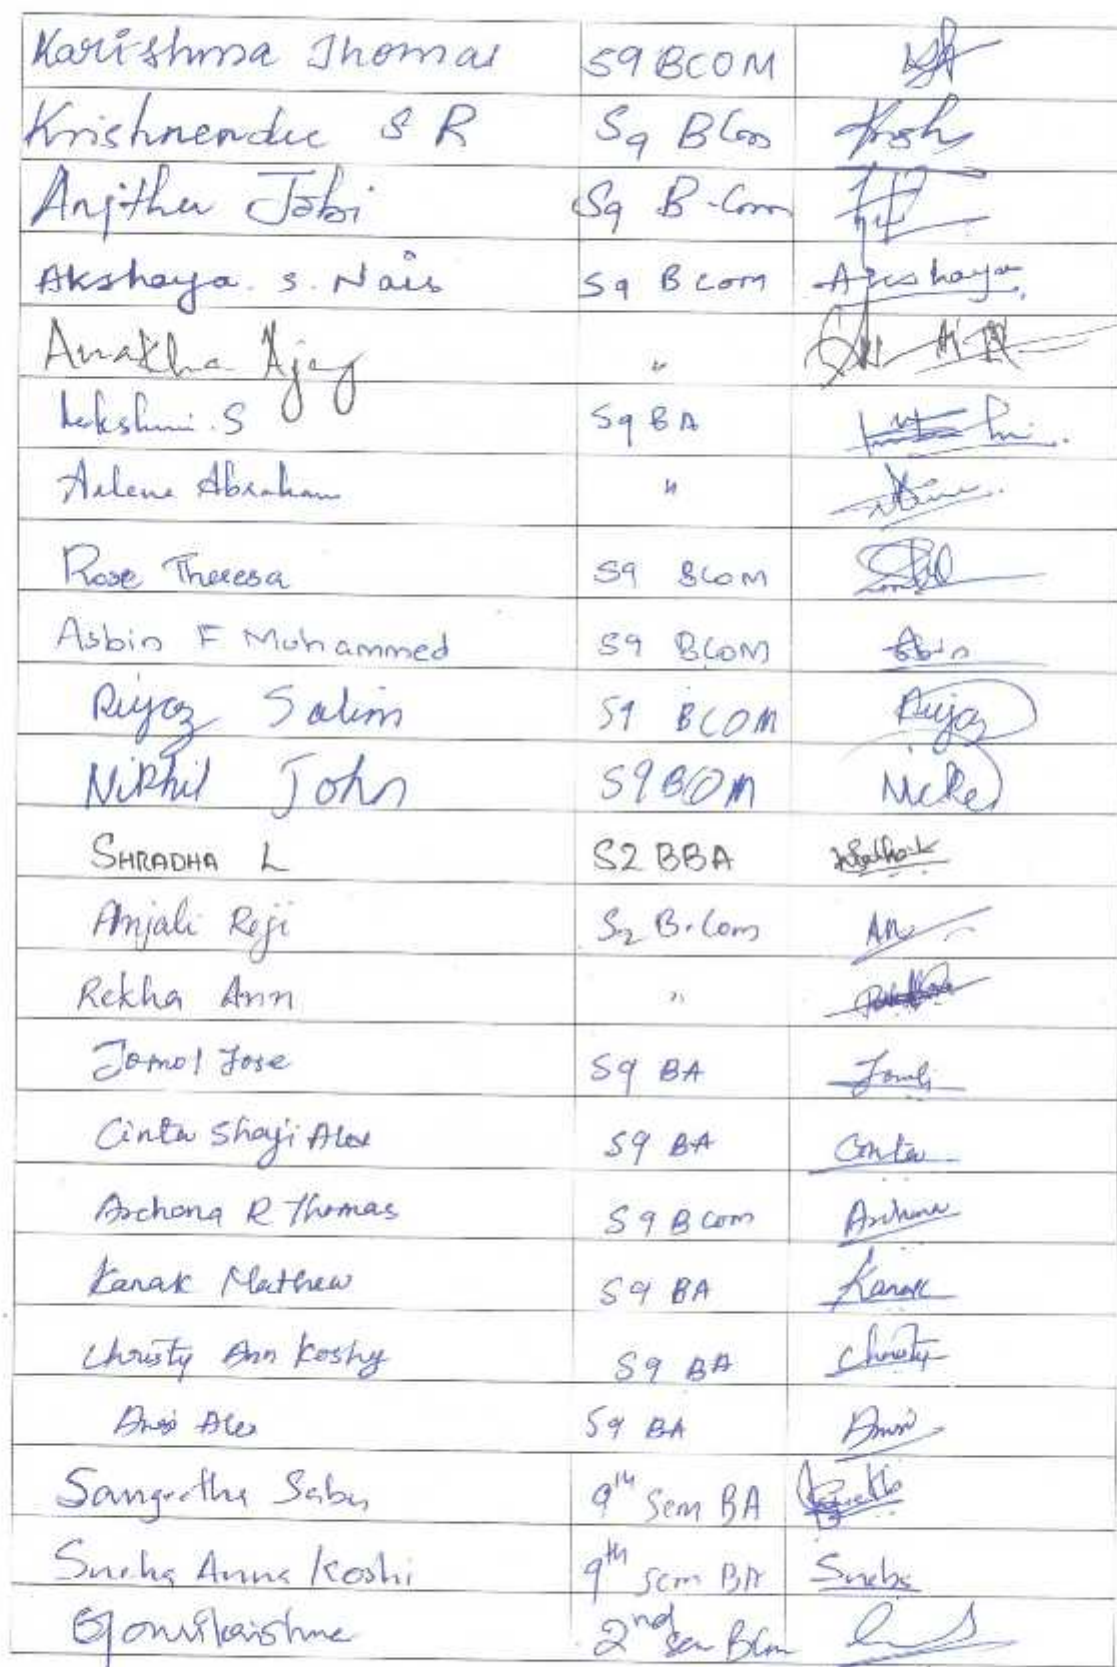 Karishma Thomas S9 BCOM
Krishnendu S R S9 BCom Krish
Anjitha Jobi S9 B-Com
Akshaya. S. Nair S9 BCom Akshaya
Anakha Ajay "
Lekshmi. S S9 BA
Arlene Abraham "
Rose Theresa S9 BCOM
Asbin F Muhammed S9 BCOM Asbin
Rijaz Salim S9 BCOM Rijaz
Nikhil John S9 BOM
SHRADHA L S2 BBA
Anjali Reji S2 B.Com An
Rekha Ann " Rekha
Jomol Jose S9 BA
Cinta Shaji Alex S9 BA Cinta
Archana R Thomas S9 BCom Archana
Kanak Mathew S9 BA Kanak
Christy Ann Koshy S9 BA Christy
Alex S9 BA
Sangeetha Sabu 9th Sem BA
Sneha Anna Koshi 9th Sem BA Sneha
Gourikrishna 2nd Sem BCom